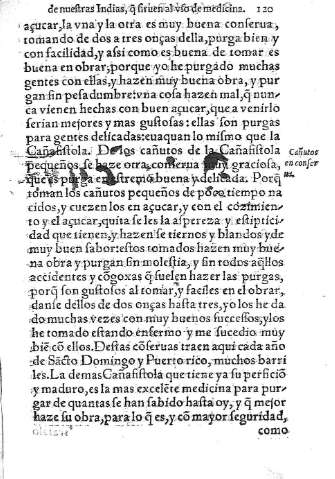 de nuestras Indias, q̃ siruen al vso de medicina. 120
açucar, la vna y la otra es muy buena conserua,
tomando de dos a tres onças della, purga bien y
con facilidad, y assi como es buena de tomar es
buena en obrar; porque yo he purgado muchas
gentes con ellas, y hazen muy buena obra, y pur
gan sin pesadumbre: vna cosa hazen mal, q̃ nun
ca vienen hechas con buen açucar, que a venirlo
serian mejores y mas gustosas: ellas son purgas
para gentes delicadas: euaquan lo mismo que la
Cañafistola. De los cañutos de la Cañafistola
pequeños se haze otra conserua muy graciosa,
que purga en estremo buena y delicada. Porq̃
toman los cañutos pequeños de poco tiempo na
cidos, y cuezen los en açucar, y con el cozimien
to y el açucar, quita se les la aspereza y estiptici
dad que tienen, y hazen se tiernos y blandos y de
muy buen sabor: estos tomados hazen muy bue
na obra y purgan sin molestia, y sin todos aq̃llos
accidentes y cõgoxas q̃ suelen hazer las purgas,
porq̃ son gustosos al tomar, y faciles en el obrar,
danse dellos de dos onças hasta tres, yo los he da
do muchas vezes con muy buenos sucessos, y los
he tomado estando enfermo y me sucedio muy
biẽ cõ ellos. Destas cõseruas traen aqui cada año
de Sãcto Domingo y Puerto rico, muchos barri
les. La demas Cañafistola que tiene ya su perficiõ
y maduro, es la mas excelẽte medicina para pur-
gar de quantas se han sabido hasta oy, y q̃ mejor
haze su obra, para lo q̃ es, y cõ mayor seguridad,
como
Cañutos
en conser
ua.